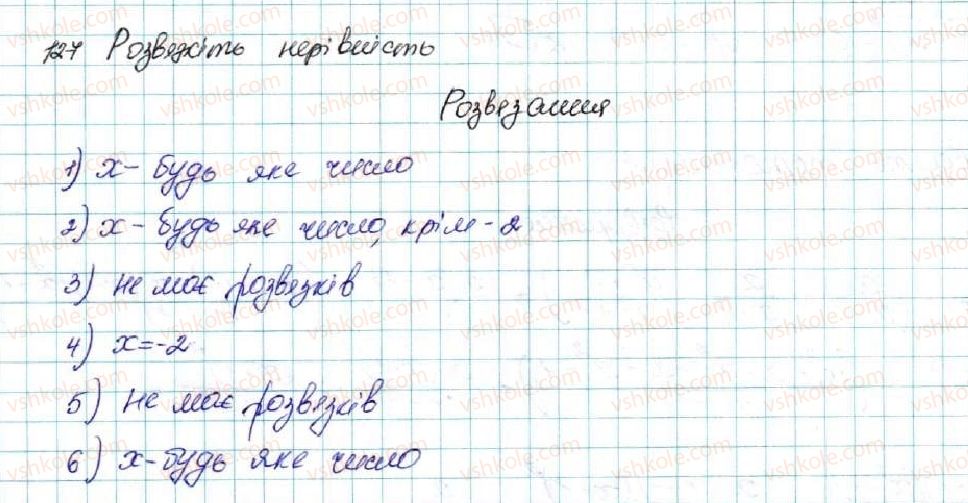 727 Розвяжіть нерівність
Розвязання
1) x - будь яке число
2) x - будь яке число, крім -2
3) Не має розвязків
4) x=-2
5) Не має розвязків
6) x - будь яке число